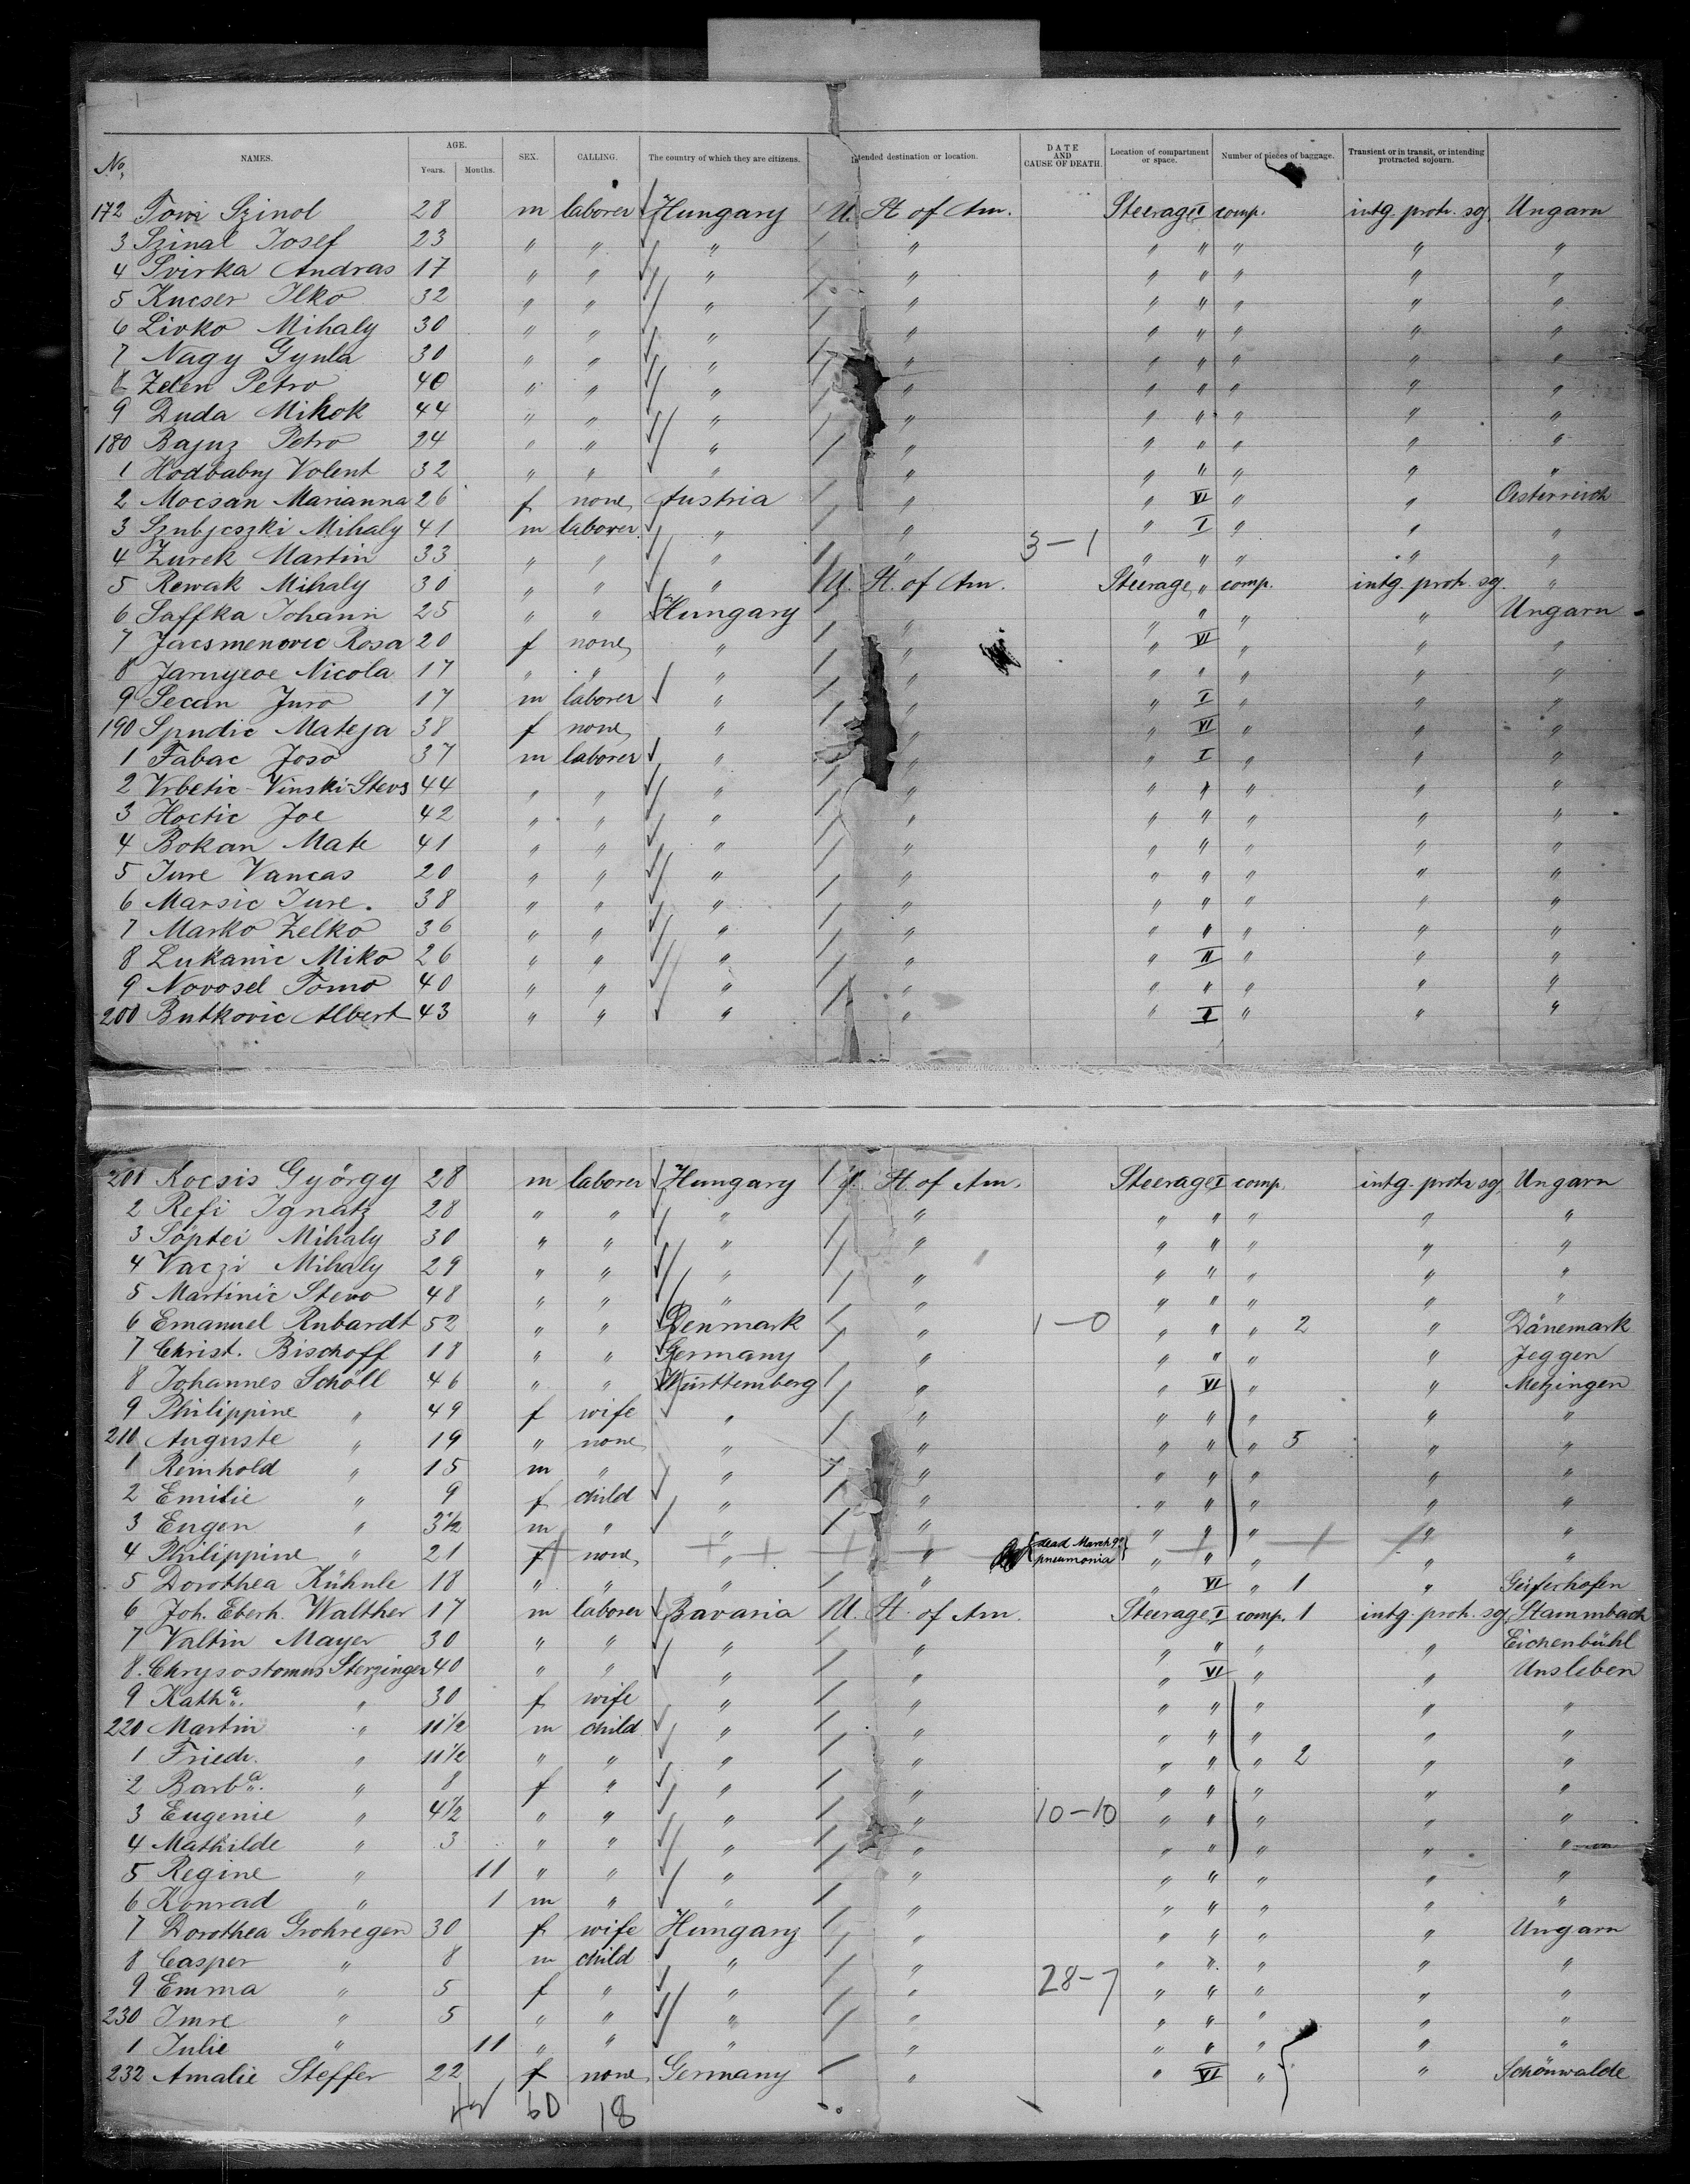 No. NAMES. AGE. Years. Months. SEX. CALLING. The country of which they are citizens. Intended destination or location. DATE AND CAUSE OF DEATH. Location of compartment or space. Number of pieces of baggage. Transient or in transit, or intending protracted sojourn.
172 Towi Szinol 28 m laborer Hungary U. St. of Am. Steerage I comp. intg. protr. sg. Ungarn
3 Szinal Josef 23 " " " " " " " " "
4 Svirka Andras 17 " " " " " " " " "
5 Kucser Ilko 32 " " " " " " " " "
6 Livko Mihaly 30 " " " " " " " " "
7 Nagy Gyula 30 " " " " " " " " "
8 Zelen Petro 40 " " " " " " " " "
9 Duda Mikok 44 " " " " " " " " "
180 Bajuz Petro 24 " " " " " " " " "
1 Hodbabny Volent 32 " " " " " " " " "
2 Mocsan Marianna 26 f none Austria " " VI " " Oesterreich
3 Sznbjcszki Mihaly 41 m laborer " " " I " " "
4 Zurek Martin 33 " " " " 3-1 " " " " "
5 Rewak Mihaly 30 " " " U. St. of Am. Steerage " comp. intg. protr. sg. "
6 Saffka Johann 25 " " Hungary " " " " " Ungarn
7 Jacsmenovic Rosa 20 f none " " " VI " " "
8 Jarnyeoe Nicola 17 " " " " " " " " "
9 Secan Juro 17 m laborer " " " I " " "
190 Spudic Mateja 38 f none " " " VI " " "
1 Fabac Joso 37 m laborer " " " I " " "
2 Vrbetic-Vinski-Stevo 44 " " " " " " " " "
3 Hoctic Joe 42 " " " " " " " " "
4 Bokan Mate 41 " " " " " " " " "
5 Jure Vancas 20 " " " " " " " " "
6 Marsic Jure. 38 " " " " " " " " "
7 Marko Zelko 36 " " " " " " " " "
8 Lukanic Miko 26 " " " " " II " " "
9 Novosel Tomo 40 " " " " " " " " "
200 Butkovic Albert 43 " " " " " I " " "
201 Kocsis György 28 m laborer Hungary U. St. of Am. Steerage I comp. intg. protr. sg. Ungarn
2 Refi Ignatz 28 " " " " " " " " "
3 Söptei Mihaly 30 " " " " " " " " "
4 Vaczi Mihaly 29 " " " " " " " " "
5 Martinic Stevo 48 " " " " " " " " "
6 Emanuel Rubardt 52 " " Denmark " 1-0 " " " 2 " Dänemark
7 Christ. Bischoff 18 " " Germany " " " " " Jeggen
8 Johannes Schöll 46 " " Württemberg " " VI " " Metzingen
9 Philippine " 49 f wife " " " " " " "
210 Auguste " 19 " none " " " " " 5 " "
1 Reinhold " 15 m " " " " " " " "
2 Emilie " 9 f child " " " " " " "
3 Eugen " 3½ m " " " " " " " "
4 Philippine " 21 f none " " dead March 9th pneumonia " " " "
5 Dorothea Kühnle 18 " " " " " VI " 1 " Geiferhofen
6 Joh. Eberh. Walther 17 m laborer Bavaria U. St. of Am. Steerage I comp. 1 intg. protr. sg. Stammbach
7 Valtin Mayer 30 " " " " " " " " Eichenbühl
8. Chrysostomus Sterzinger 40 " " " " " VI " " Unsleben
9 Katha. " 30 f wife " " " " " " "
220 Martin " 11½ m child " " " " " " "
1 Friedr. " 11½ " " " " " " " 2 " "
2 Barba. " 8 f " " " " " " " "
3 Eugenie " 4½ " " " " 10-10 " " " " "
4 Mathilde " 3 " " " " " " " " "
5 Regine " 11 " " " " " " " " "
6 Konrad " 1 m " " " " " " " "
7 Dorothea Grohregen 30 f wife Hungary " " " " " Ungarn
8 Casper " 8 m child " " " " " " "
9 Emma " 5 f " " " 28-7 " " " " "
230 Imre " 5 " " " " " " " " "
1 Julie " 11 " " " " " " " " "
232 Amalie Steffer 22 f none Germany " " VI " " Schönwalde
60 18